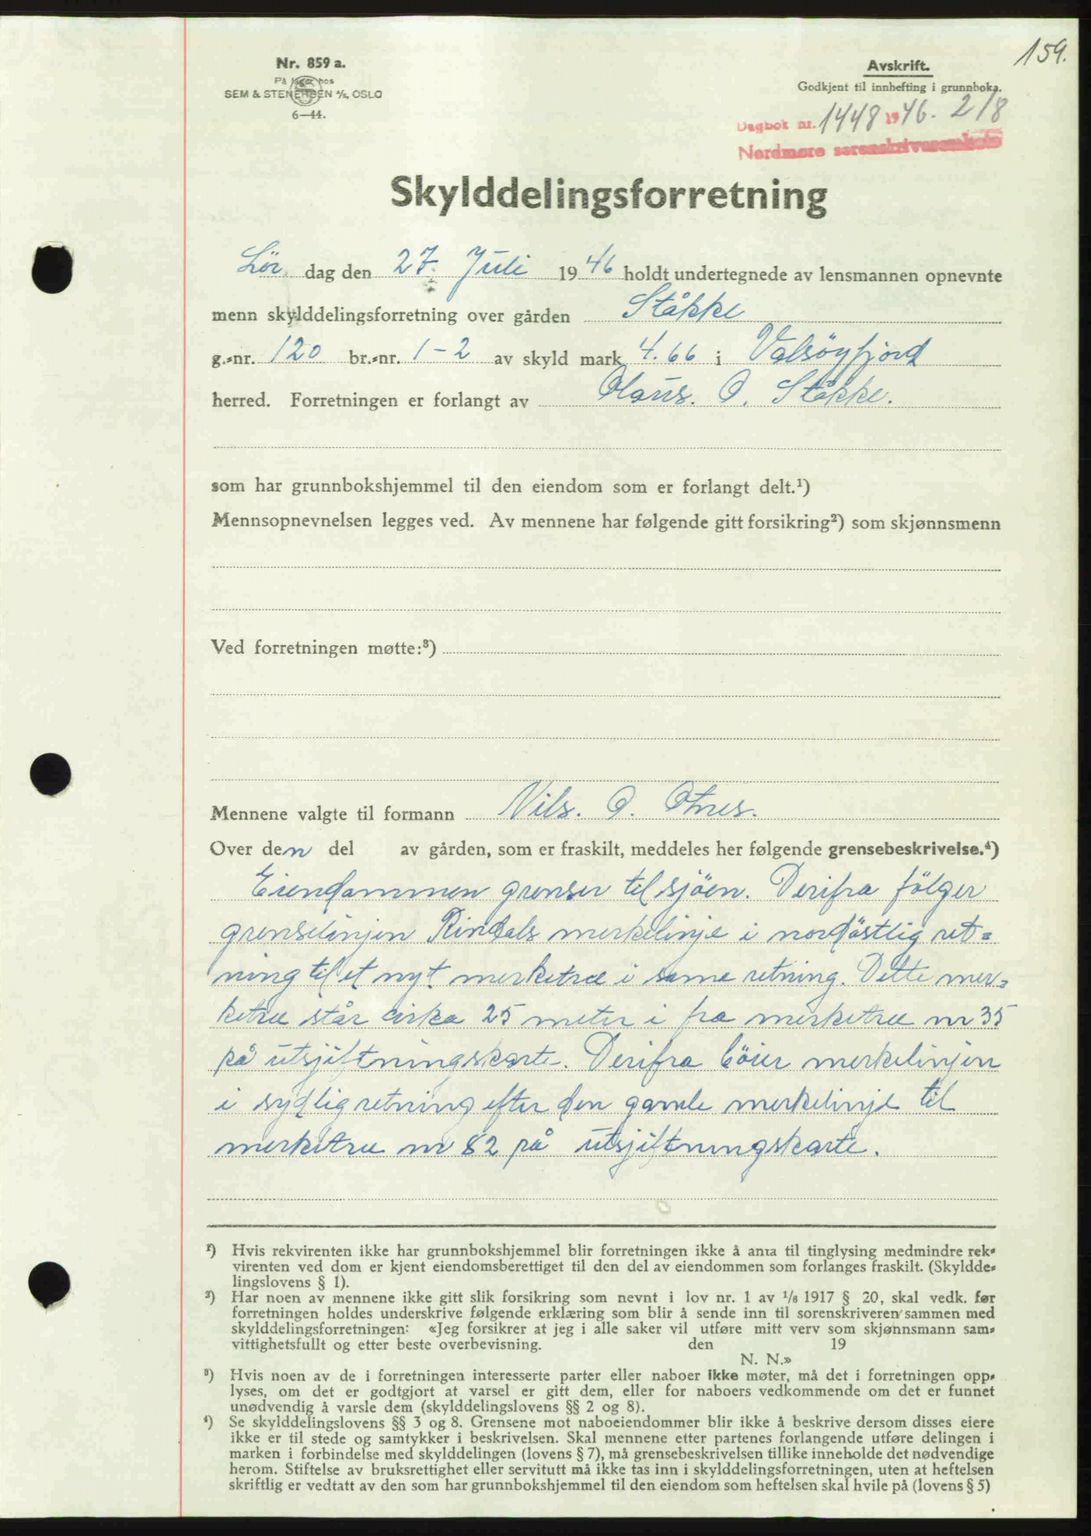 159.
Nr. 859 a.
På lager hos
SEM & STENERSEN A/S, OSLO
6—44.
Avskrift.
Godkjent til innhefting i grunnboka.
Dagbok nr. 1448 1946. 2/8
Nordmøre sorenskriverembete
Skylddelingsforretning
Lør. dag den 27. Juli 1946 holdt undertegnede av lensmannen opnevnte
menn skylddelingsforretning over gården Ståkke
g.-nr. 120 br.-nr. 1-2 av skyld mark 4.66 i Valsöyfjord
herred. Forretningen er forlangt av Olaus. O. Ståkke.
som har grunnbokshjemmel til den eiendom som er forlangt delt.¹)
Mennsopnevnelsen legges ved. Av mennene har følgende gitt forsikring²) som skjønnsmenn
Ved forretningen møtte:³)
Mennene valgte til formann Nils. O. Otnes.
Over den del av gården, som er fraskilt, meddeles her følgende grensebeskrivelse.⁴)
Eiendommen grenser til sjöen. Derifra fölger
grenselinjen Rindals merkelinje i nordöstlig ret=
ning til et nyt merketræ i same retning. Dette mer=
ketræ står cirka 25 meter i fra merketræ nr 35
på utsjiftningskarte. Derifra böier merkelinjen
i sydlig retning efter den gamle merkelinje til
merketræ nr 82 på utsjiftningskarte.
¹) Hvis rekvirenten ikke har grunnbokshjemmel blir forretningen ikke å anta til tinglysing medmindre rek-
virenten ved dom er kjent eiendomsberettiget til den del av eiendommen som forlanges fraskilt. (Skyldde-
lingslovens § 1).
²) Har noen av mennene ikke gitt slik forsikring som nevnt i lov nr. 1 av ¹/₆ 1917 § 20, skal vedk. før
forretningen holdes underskrive følgende erklæring som blir å sende inn til sorenskriveren sammen med
skylddelingsforretningen: «Jeg forsikrer at jeg i alle saker vil utføre mitt verv som skjønnsmann sam-
vittighetsfullt og etter beste overbevisning. den 19
N. N.»
³) Hvis noen av de i forretningen interesserte parter eller naboer ikke møter, må det i forretningen opp-
lyses, om det er godtgjort at varsel er gitt dem, eller for naboers vedkommende om det er funnet
unødvendig å varsle dem (skylddelingslovens §§ 2 og 8).
⁴) Se skylddelingslovens §§ 3 og 8. Grensene mot naboeiendommer blir ikke å beskrive dersom disses eiere
ikke er til stede og samtykker i beskrivelsen. Skal mennene etter partenes forlangende utføre delingen i
marken i forbindelse med skylddelingen (lovens § 7), må grensebeskrivelsen tillike inneholde det nødvendige
herom. Stiftelse av bruksrettighet eller servitutt må ikke tas inn i skylddelingsforretningen, uten at heftelsen
skriftlig er vedtatt av den som har grunnbokshjemmel til den eiendom som heftelsen skal hvile på (lovens § 5)